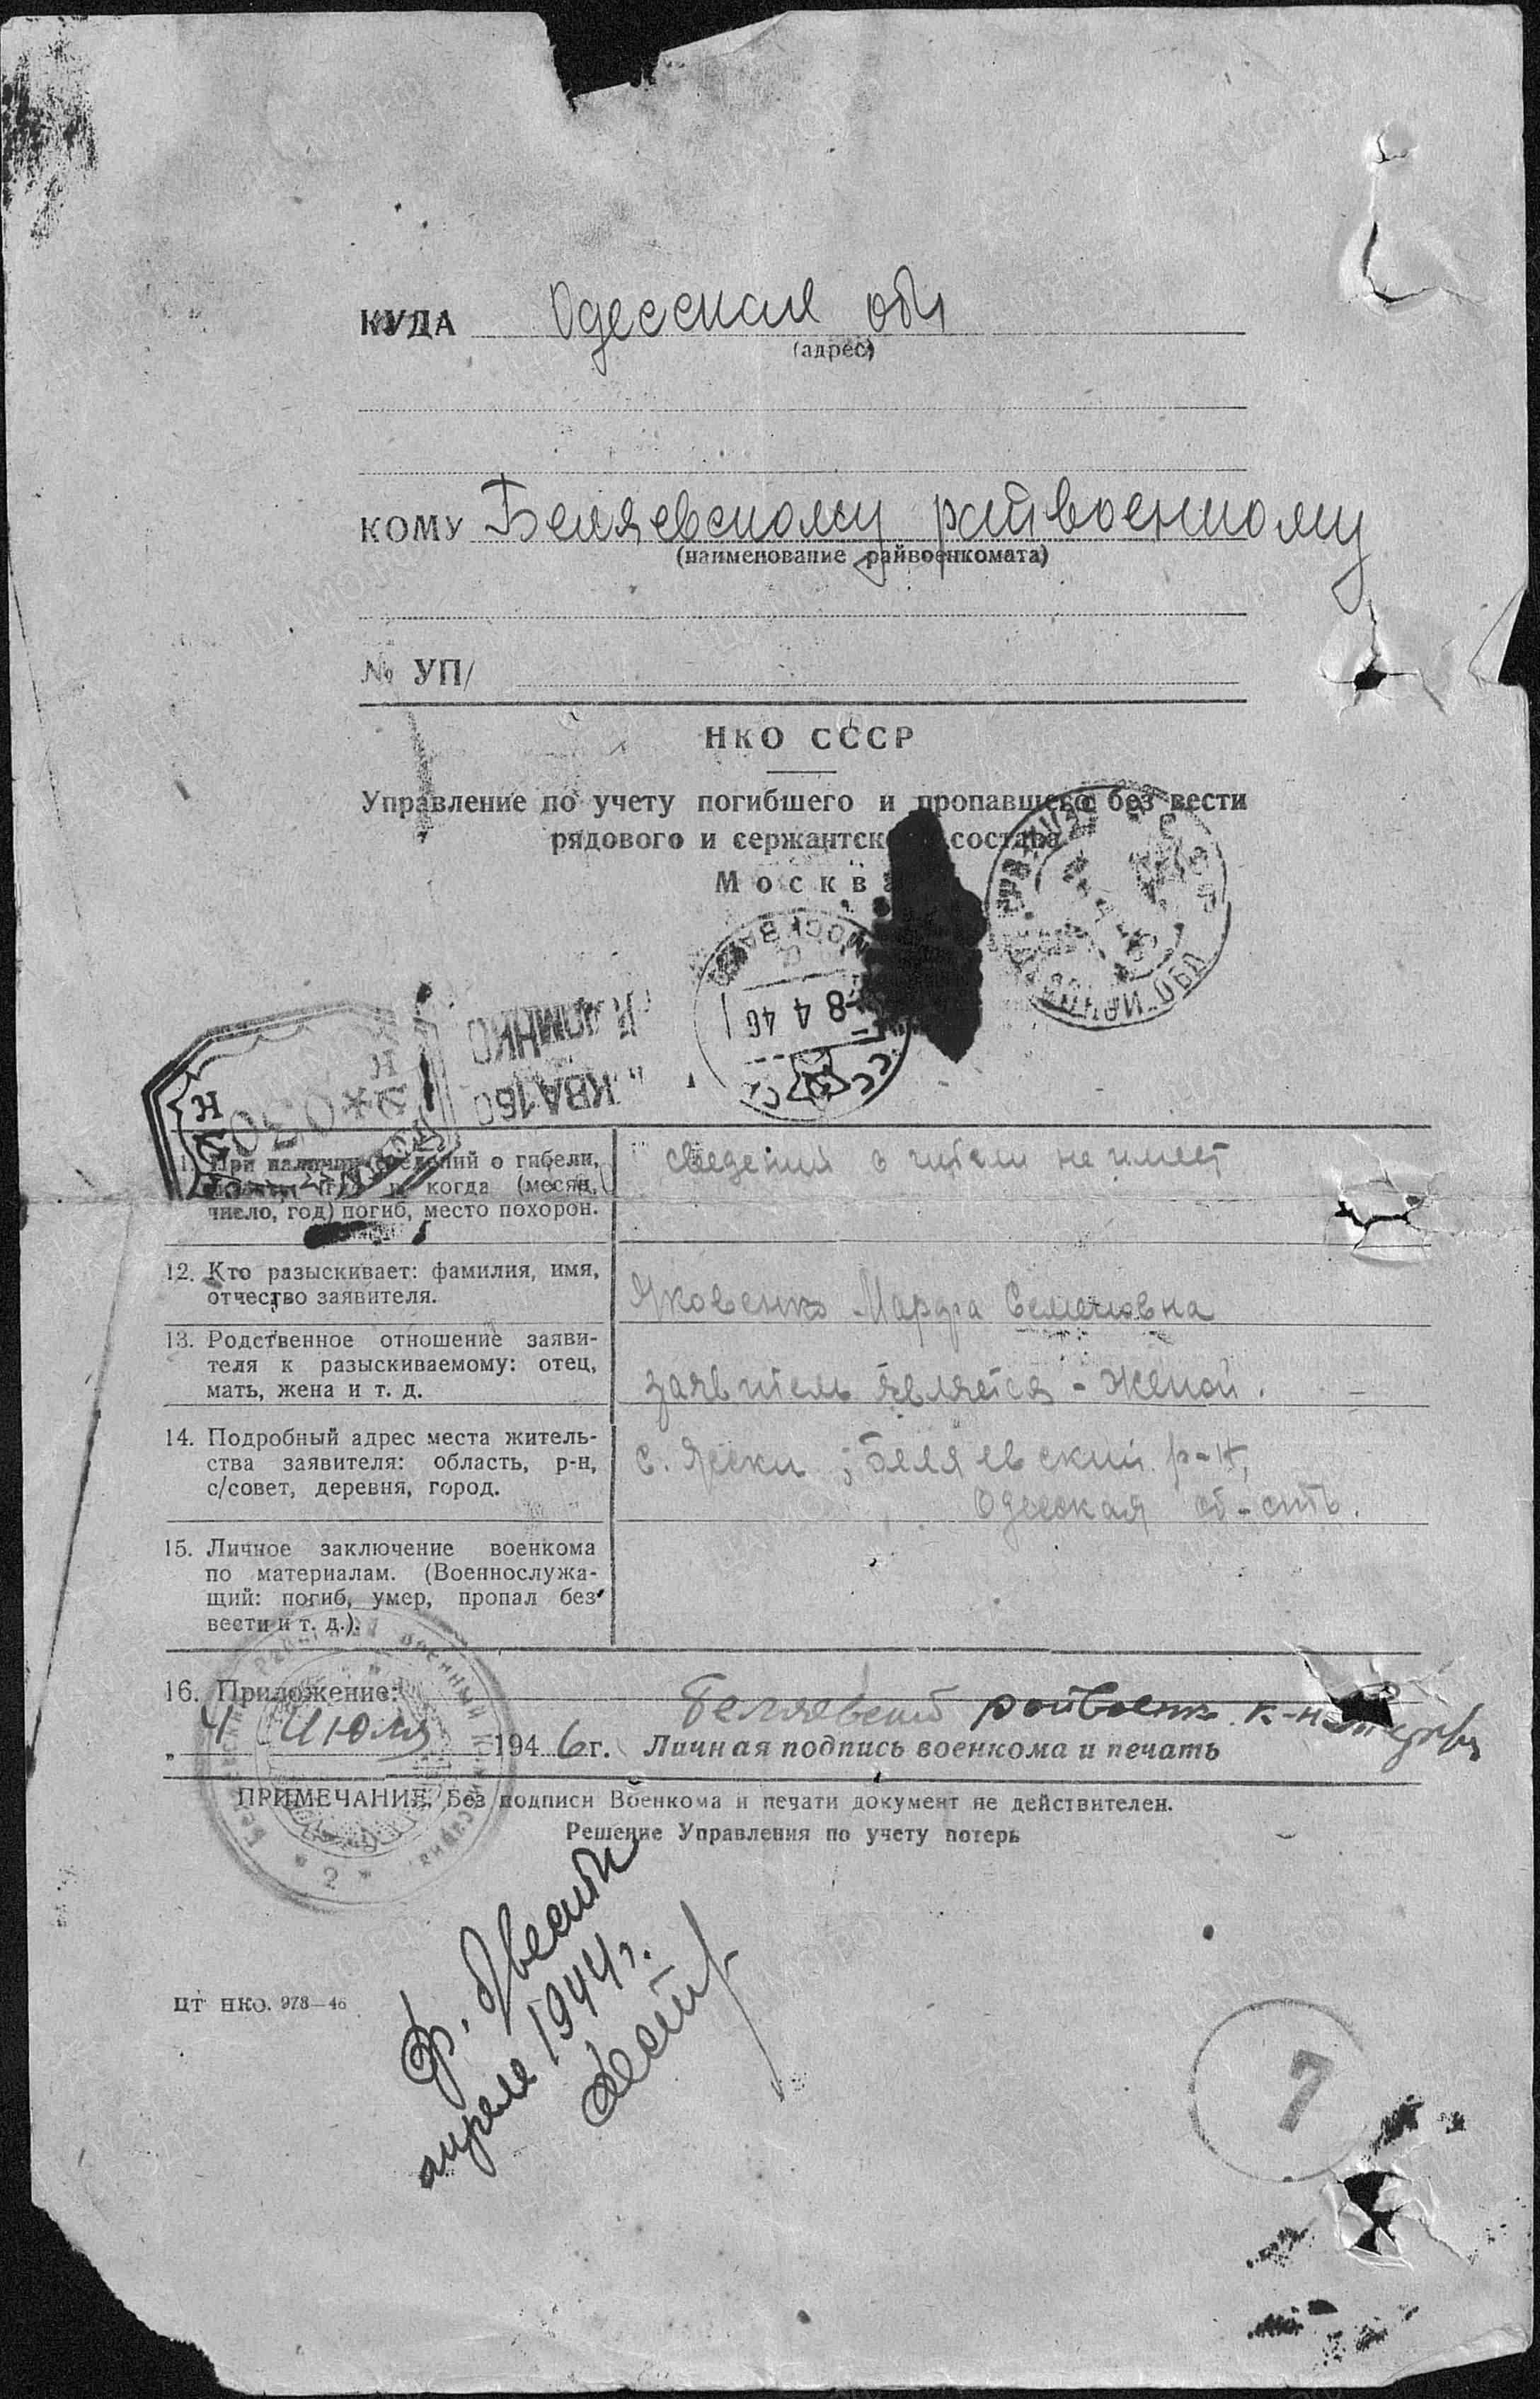 КУДА Одесская обл
(адрес)
КОМУ Беляевскому райвоенкому
(наименование райвоенкомата)
№ УП/
НКО СССР
Управление по учету погибшего и пропавшего без вести
рядового и сержантск состава
Москва
МОСКВА
8 4 46
СССР
при наличии сведений о гибели,
когда (месяц,
число, год) погиб, место похорон.
сведения о гибели не имеет
12. Кто разыскивает: фамилия, имя,
отчество заявителя.
Яковенко Марфа Семеновна
13. Родственное отношение заяви-
теля к разыскиваемому: отец,
мать, жена и т. д.
заявитель является - женой.
14. Подробный адрес места житель-
ства заявителя: область, р-н,
с/совет, деревня, город.
с. Яски; Беляевский р-н,
Одесская об-сть.
15. Личное заключение военкома
по материалам. (Военнослужа-
щий: погиб, умер, пропал без
вести и т. д.).
16. Приложение:
Беляевский райвоенк.
„ 4 Июля 1946 г. Личная подпись военкома и печать
ПРИМЕЧАНИЕ. Без подписи Военкома и печати документ не действителен.
Решение Управления по учету потерь
апреле 1944 г.
ЦТ НКО. 978—46
7